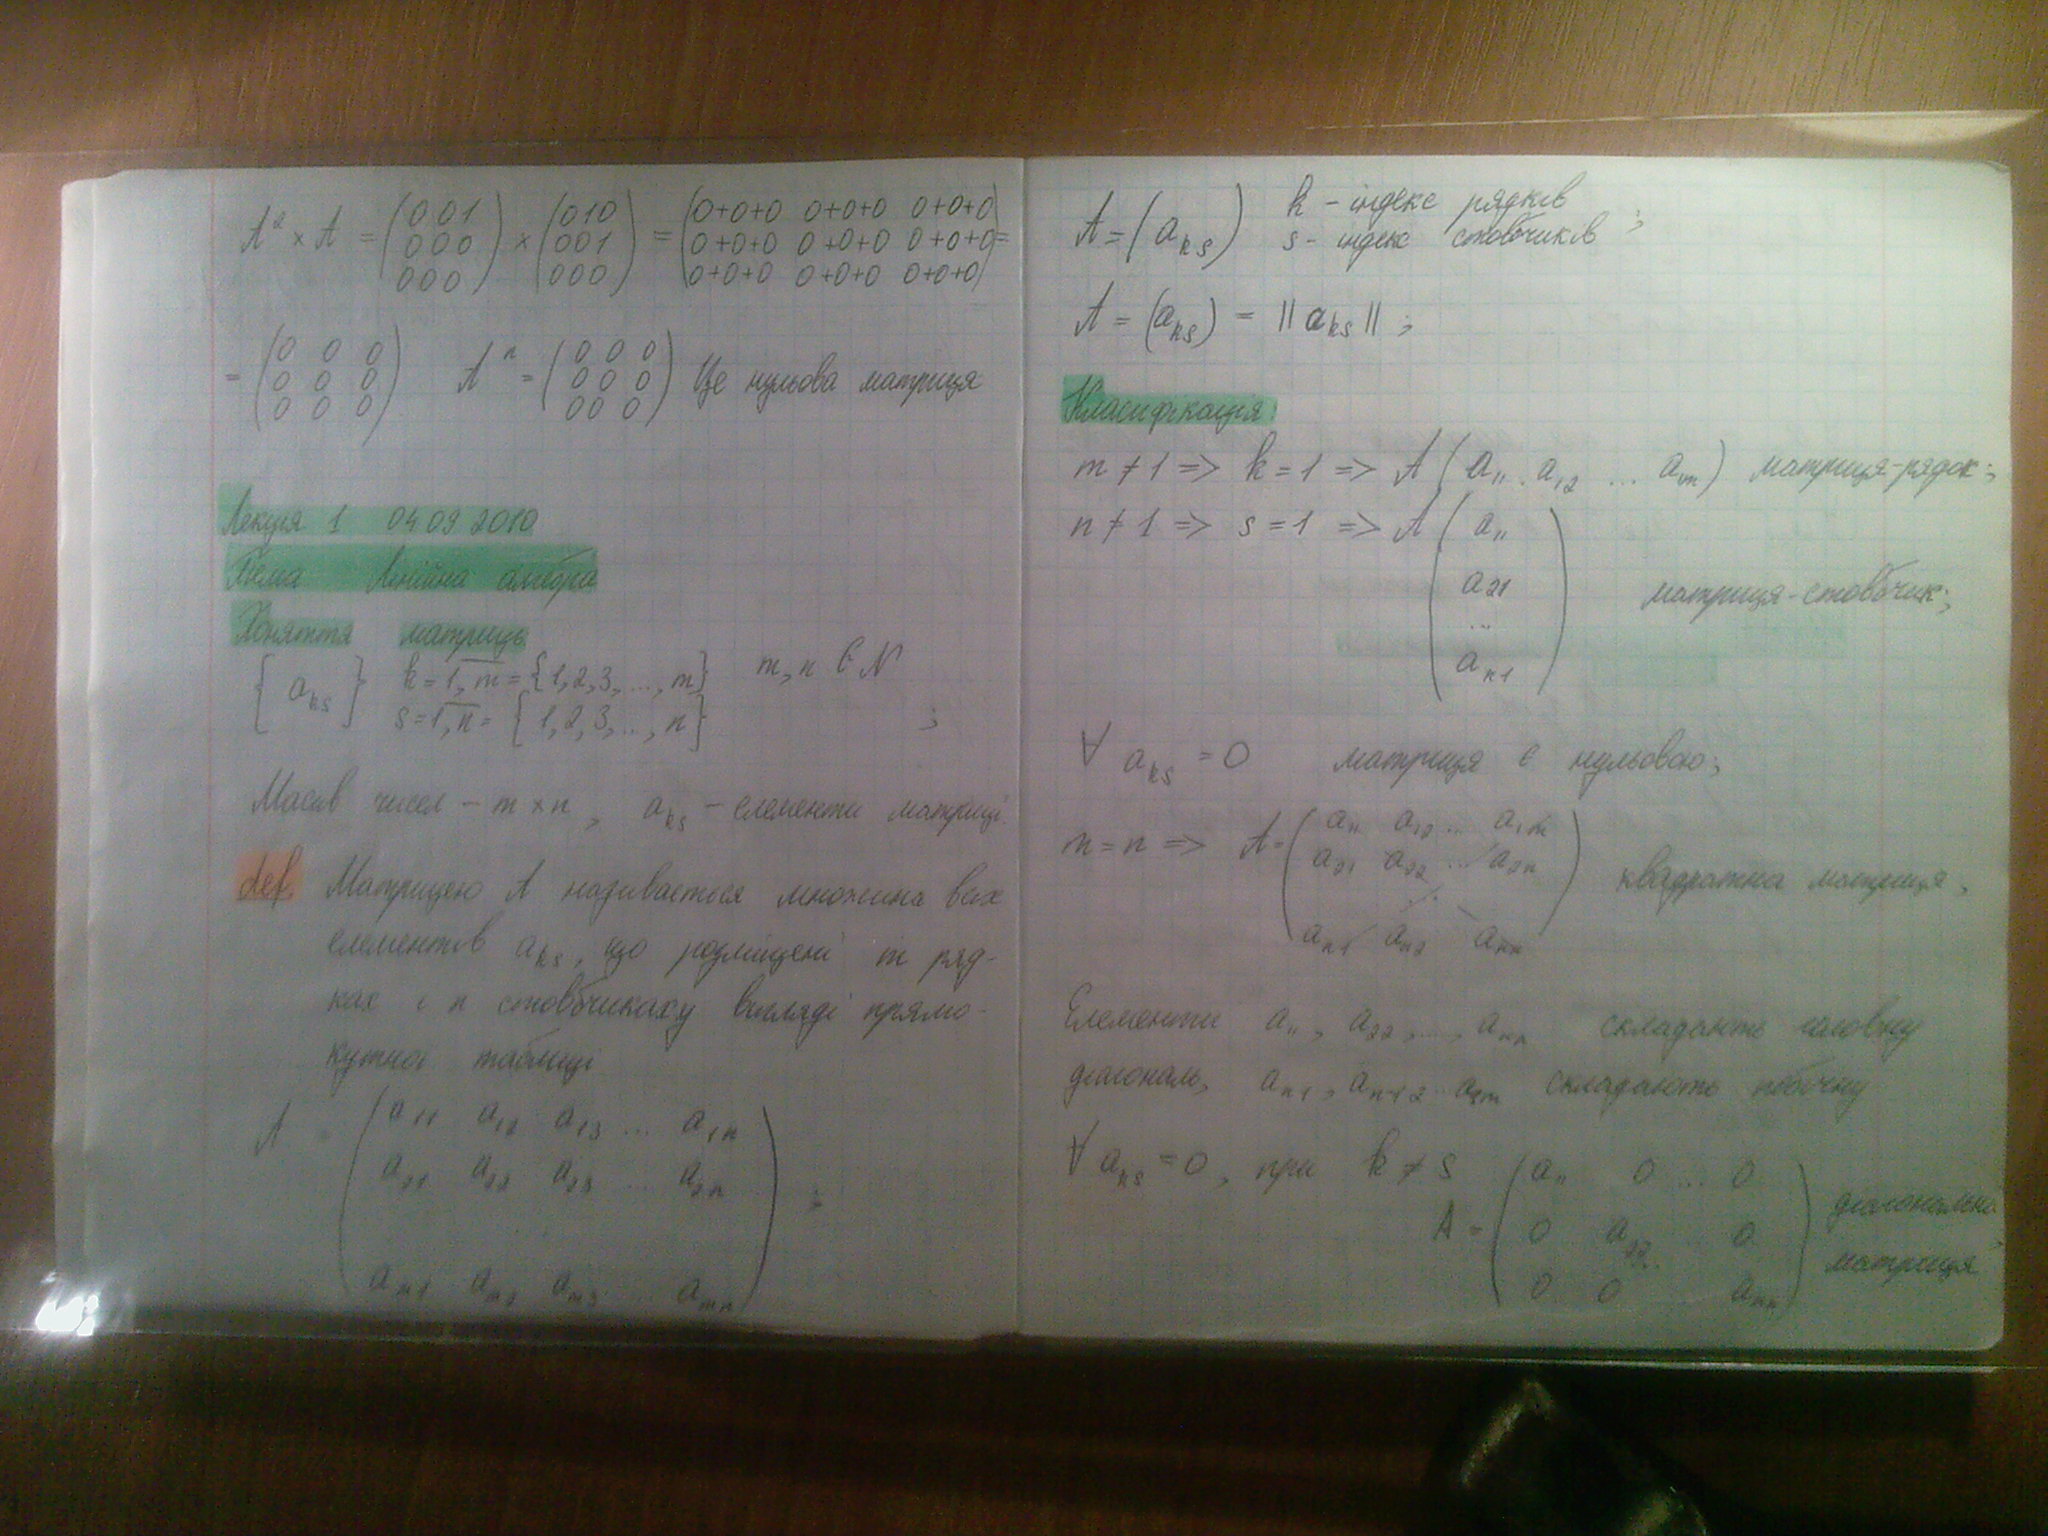 A² × A = (0 0 1 / 0 0 0 / 0 0 0) × (0 1 0 / 0 0 1 / 0 0 0) = (0+0+0 0+0+0 0+0+0 / 0+0+0 0+0+0 0+0+0 / 0+0+0 0+0+0 0+0+0) =
= (0 0 0 / 0 0 0 / 0 0 0) Aⁿ = (0 0 0 / 0 0 0 / 0 0 0) Це нульова матриця
Лекція 1 04 09 2010
Тема Лінійна алгебра
Поняття матриць
{a_ks} k = 1, m = {1, 2, 3, ..., m} m, n ∈ N
s = 1, n = {1, 2, 3, ..., n} ;
Масив чисел – m × n, a_ks – елементи матриці.
def. Матрицею А називається множина всіх
елементів a_ks, що розміщені m ряд-
ках і n стовбчиках у вигляді прямо-
кутної таблиці
A = (a₁₁ a₁₂ a₁₃ ... a₁ₙ
a₂₁ a₂₂ a₂₃ ... a₂ₙ ;
aₘ₁ aₘ₂ aₘ₃ aₘₙ)
A = (a_ks) k – індекс рядків
s – індекс стовбчиків ;
A = (a_ks) = ||a_ks|| ;
Класифікація:
m ≠ 1 => k = 1 => A (a₁₁ a₁₂ ... a₁ₙ) матриця-рядок;
n ≠ 1 => s = 1 => A (a₁₁
a₂₁
...
aₙ₁) матриця-стовбчик;
∀ a_ks = 0 матриця є нульовою;
m = n => A = (a₁₁ a₁₂ ... a₁ₙ
a₂₁ a₂₂ ... a₂ₙ
aₙ₁ aₙ₂ aₙₙ) квадратна матриця;
Елементи a₁₁, a₂₂, ..., aₙₙ складають головну
діагональ, складають побічну
∀ a_ks = 0, при k ≠ s
A = (a₁₁ 0 ... 0
0 a₂₂ 0
0 0 aₙₙ) діагональна
матриця